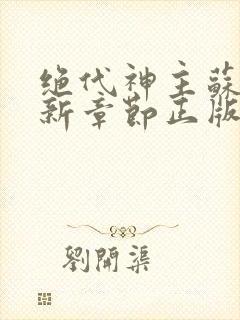 绝代神主蘇
新章節正版
劉開渠